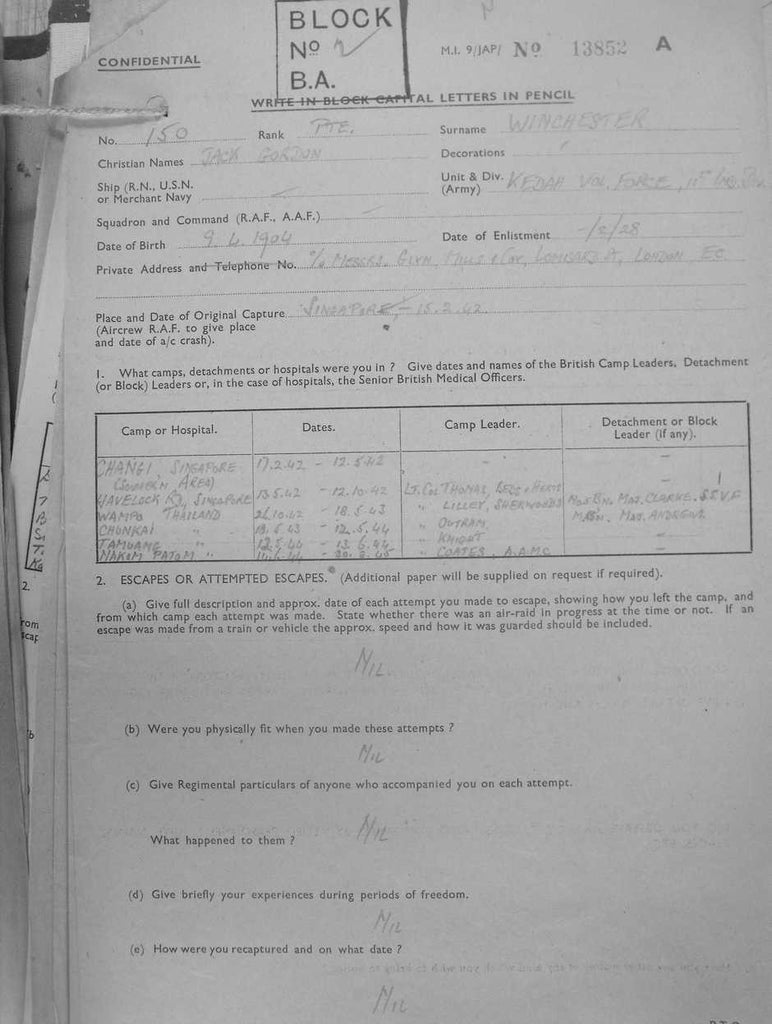 BLOCK
CONFIDENTIAL
No 2
M.I. 9/JAP/ No 13852 A
B.A.
WRITE IN BLOCK CAPITAL LETTERS IN PENCIL
No. 150 Rank PTE. Surname WINCHESTER
Christian Names JACK GORDON Decorations
Ship (R.N., U.S.N. or Merchant Navy
Unit & Div. (Army) KEDAH VOL. FORCE, 11TH IND. DIV.
Squadron and Command (R.A.F., A.A.F.)
Date of Birth 9.4.1904 Date of Enlistment -/2/28
Private Address and Telephone No. C/O MESSRS. GLYN, MILLS & CO., LOMBARD ST, LONDON EC.
Place and Date of Original Capture SINGAPORE - 15.2.42
(Aircrew R.A.F. to give place
and date of a/c crash).
1. What camps, detachments or hospitals were you in ? Give dates and names of the British Camp Leaders, Detachment
(or Block) Leaders or, in the case of hospitals, the Senior British Medical Officers.
Camp or Hospital. Dates. Camp Leader. Detachment or Block Leader (if any).
CHANGI, SINGAPORE 17.2.42 - 12.5.42 - -
(SOUTHERN AREA)
HAVELOCK RD, SINGAPORE 13.5.42 - 12.10.42 LT. COL THOMAS, BEDS & HERTS
WAMPO THAILAND 26.10.42 - 18.5.43 " LILLEY, SHERWOODS BN. MAJ. CLARKE. S.S.V.F
CHUNKAI " 19.5.43 - 12.5.44 " OUTRAM. MAJ. ANDREWS.
TAMUANG " 12.5.44 - 13.6.44 " KNIGHT -
NAKOM PATOM " " COATES, A.A.M.C. -
2. ESCAPES OR ATTEMPTED ESCAPES. (Additional paper will be supplied on request if required).
(a) Give full description and approx. date of each attempt you made to escape, showing how you left the camp, and
from which camp each attempt was made. State whether there was an air-raid in progress at the time or not. If an
escape was made from a train or vehicle the approx. speed and how it was guarded should be included.
NIL
(b) Were you physically fit when you made these attempts ?
NIL
(c) Give Regimental particulars of anyone who accompanied you on each attempt.
NIL
What happened to them ?
(d) Give briefly your experiences during periods of freedom.
NIL
(e) How were you recaptured and on what date ?
NIL